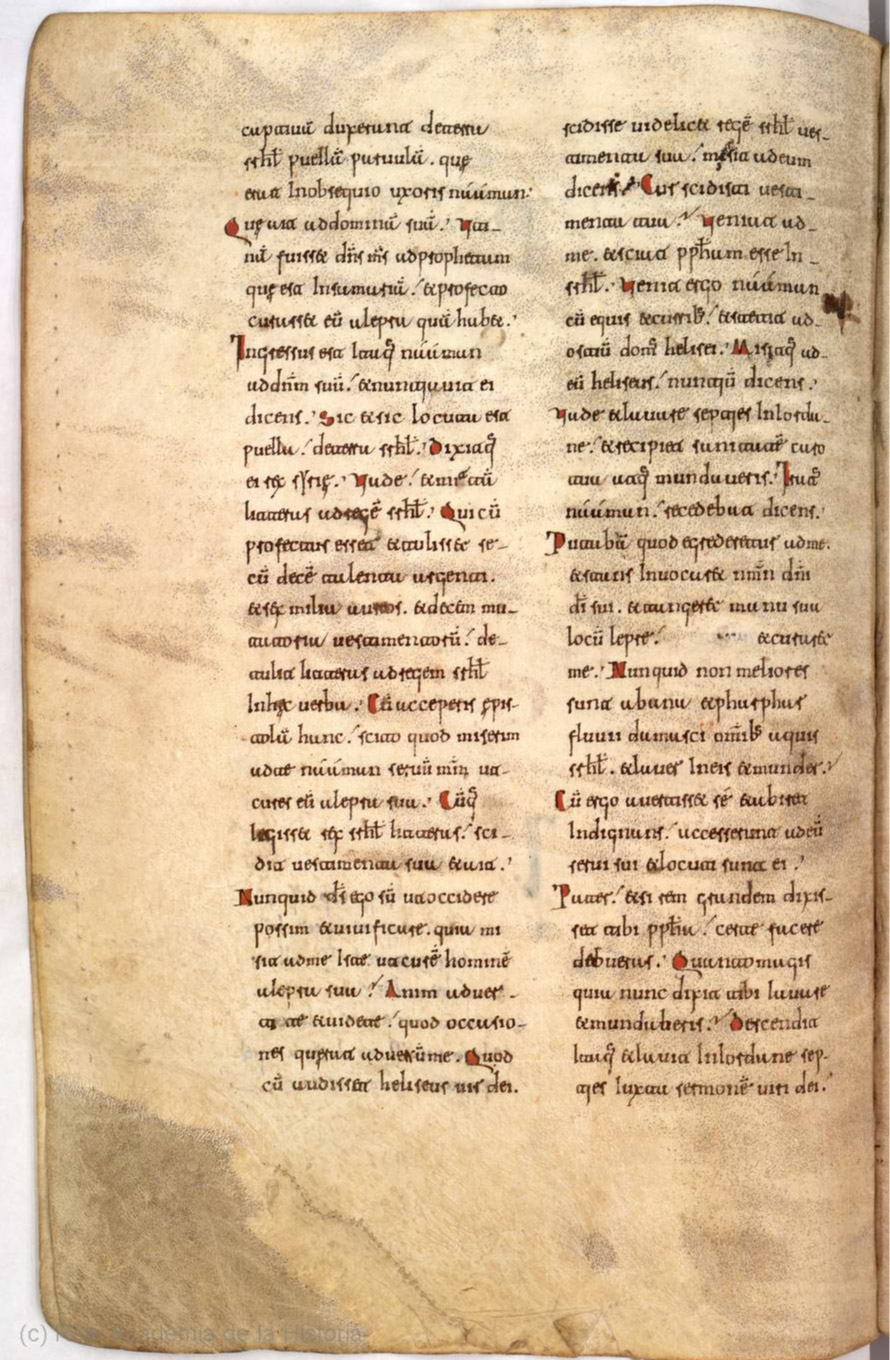 captiuā duxerunt deterra
srhł puellā paruulā. quę
erat Inobsequio uxoris náaman:
Quę ait addominū suū. Uti-
nā fuisset dńs ms̄ adprophetam
qui est Insamaria. et profecto
curasset eū alepra quā habet.
Ingressus est Itaq̄ náaman
addnm̄ suū. et nuntiauit ei
dicens. Sic et sic locuta est
puella. deterra srhł. Dixitq̄
ei rex sẏrię. Uade. et mittā
litteras ad regē srhł. Qui cū
profectus esset et tulisset se-
cū decē talenta argenti.
et sex milia aureos. et decem mu-
tatoria uestimentorū. de-
tulit litteras ad regem srhł
Inhęc uerba. Cū acceperis epis-
tolā hanc. scito quod miserim
ad te náaman seruū mm̄ ut
cures eū alepra sua. Cūq̄
legisset rex srhł litteras. sci-
dit uestimenta sua et ait.
Nunquid ds̄ ego sū ut occidere
possim et uiuificare. quia iste mi
sit ad me ut curē hominē
alepra sua. Animaduer-
tite et uidete. quod occasio-
nes querat aduersū me. Quod
cū audisset heliseus uir dei.
scidisse uidelicet regē srhł ues-
timenta sua. misit ad eum
dicens. Cur scidisti uesti-
menta tua. Ueniat ad-
me. et sciat ppħam esse In-
srhł. Uenit ergo náaman
cū equis et curribꝫ. et stetit ad-
ostiū dom̄ helisei. Misitq̄ ad-
eū heliseus. nuntiū dicens.
Uade et lauare septies Iniorda-
ne. et recipiet sanitatē caro
tua atq̄ mundaueris. Iratꝰ
náaman. recedebat dicens.
Putabā quod egrederetur adme.
et stans Inuocaret nm̄n dm̄i
dī sui. et tangeret manu sua
locū lepre. et curaret
me. Nunquid non meliores
sunt abana et pharphar
fluuii damasci om̄ibꝫ aquis
srhł. et lauer Ineis et munder.
Cū ergo auertisset sē et abiret
Indignans. accesserunt ad eū
serui sui et locuti sunt ei.
Pater. et si rem grandem dixis-
set tibi ppħa. certe facere
debueras. Quanto magis
quia nunc dixit tibi lauare
et mundaberis. Descendit
Itaq̄ et lauit Iniordane sep-
ties Iuxta sermonē uiri dei.